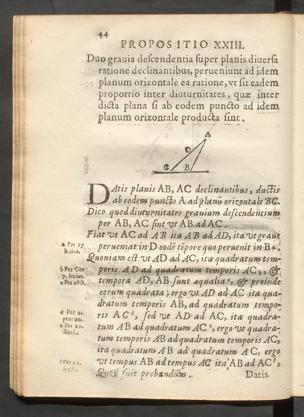 44
PROPOSITIO XXIII.
Duo grauia descendentia super planis diuersa
ratione declinantibus, perueniunt ad idem
planum orizontale ea ratione, vt sit eadem
proportio inter diuturnitates, quæ inter
dicta plana si ab eodem puncto ad idem
planum orizontale producta sint.
A
D
C B
DAtis planis AB, AC declinantibus, ductis
ab eodem puncto A ad planũ orizontale BC.
Dico quod diuturnitates grauium descendentium
per AB, AC sint vt AB ad AC.
Fiat vt AC ad AB ita AB ad AD, ita vt graue
perueniat in D eodẽ tẽpore quo peruenit in B
Quoniam est vt AD ad AC, ita quadratum tem-
poris AD ad quadratum temporis AC, &
tempora AD, AB sunt aqualia, & proinde
eorum quadrata; ergo vt AD ad AC ita qua-
dratum temporis AB, ad quadratum tempo-
ris AC, sed vt AD ad AC, ita quadra-
tum AB ad quadratum AC, ergo vt quadra-
tum temporis AB ad quadratum temporis AC,
ita quadratum AB ad quadratum AC, ergo
vt tempus AB ad tempus AC ita AB ad AC,
Quod fuit probandum.
Datis